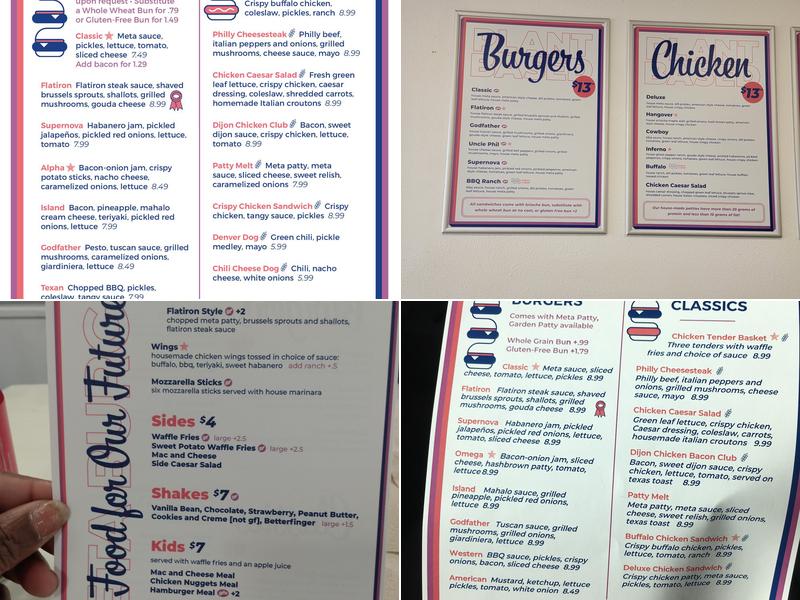 upon request • Substitute
a Whole Wheat Bun for .79
or Gluten-Free Bun for 1.49
Classic Meta sauce,
pickles, lettuce, tomato,
sliced cheese 7.49
Add bacon for 1.29
Flatiron Flatiron steak, shaved
brussels sprouts, shallots, grilled
mushrooms, gouda cheese 8.99
Supernova Habanero jam, pickled
jalapeños, pickled red onions, lettuce,
tomato 7.99
Alpha Bacon-onion jam, crispy
potato sticks, nacho cheese,
caramelized onions, lettuce 8.49
Island Bacon, pineapple, mahalo
cream cheese, teriyaki, pickled red
onions, lettuce 7.99
Godfather Pesto, tuscan sauce, grilled
mushrooms, caramelized onions,
giardiniera, lettuce 8.49
Texan Chopped BBQ, pickles,
coleslaw, tangy sauce 7.99
Crispy buffalo chicken,
coleslaw, pickles, ranch 8.99
Philly Cheesesteak Philly beef,
italian peppers and onions, grilled
mushrooms, cheese sauce, mayo 8.99
Chicken Caesar Salad Fresh green
leaf lettuce, crispy chicken, caesar
dressing, coleslaw, shredded carrots,
homemade Italian croutons 9.99
Dijon Chicken Club Bacon, sweet
dijon sauce, crispy chicken, lettuce,
tomato 8.99
Patty Melt Meta patty, meta
sauce, sliced cheese, sweet relish,
caramelized onions 7.99
Crispy Chicken Sandwich Crispy
chicken, tangy sauce, pickles 8.99
Denver Dog Green chili, pickle
medley, mayo 5.99
Chili Cheese Dog Chili, nacho
cheese, white onions 5.99
Burgers
$13
Classic
Flatiron
Godfather
Uncle Phil
Supernova
BBQ Ranch
All sandwiches come with brioche bun, substitute with
whole wheat bun at no cost, or gluten-free bun +2
Chicken
$13
Deluxe
Hangover
Cowboy
Inferno
Buffalo
Chicken Caesar Salad
Our house-made patties have more than 20 grams of
protein and less than 10 grams of fat!
Food for Our Future
Flatiron Style +2
chopped meta patty, brussels sprouts and shallots,
flatiron steak sauce
Wings
housemade chicken wings tossed in choice of sauce:
buffalo, bbq, teriyaki, sweet habanero add ranch +.5
Mozzarella Sticks
six mozzarella sticks served with house marinara
Sides $4
Waffle Fries large +2.5
Sweet Potato Waffle Fries large +2.5
Mac and Cheese
Side Caesar Salad
Shakes $7
Vanilla Bean, Chocolate, Strawberry, Peanut Butter,
Cookies and Creme [not gf], Betterfinger large +1.5
Kids $7
served with waffle fries and an apple juice
Mac and Cheese Meal
Chicken Nuggets Meal
Hamburger Meal +2
BURGERS
Comes with Meta Patty,
Garden Patty available
Whole Grain Bun +.99
Gluten-Free Bun +1.79
Classic Meta sauce, sliced
cheese, tomato, lettuce, pickles 8.99
Flatiron Flatiron steak sauce, shaved
brussels sprouts, shallots, grilled
mushrooms, gouda cheese 8.99
Supernova Habanero jam, pickled
jalapeños, pickled red onions, lettuce,
tomato, sliced cheese 8.99
Omega Bacon-onion jam, sliced
cheese, hashbrown patty, tomato,
lettuce 8.99
Island Mahalo sauce, grilled
pineapple, pickled red onions,
lettuce 8.99
Godfather Tuscan sauce, grilled
mushrooms, grilled onions,
giardiniera, lettuce 8.99
Western BBQ sauce, pickles, crispy
onions, bacon, sliced cheese 8.99
American Mustard, ketchup, lettuce
pickles, tomato, white onion 8.49
CLASSICS
Chicken Tender Basket
Three tenders with waffle
fries and choice of sauce 8.99
Philly Cheesesteak
Philly beef, italian peppers and
onions, grilled mushrooms, cheese
sauce, mayo 8.99
Chicken Caesar Salad
Green leaf lettuce, crispy chicken,
Caesar dressing, coleslaw, carrots,
housemade italian croutons 9.99
Dijon Chicken Bacon Club
Bacon, sweet dijon sauce, crispy
chicken, lettuce, tomato, served on
texas toast 8.99
Patty Melt
Meta patty, meta sauce, sliced
cheese, sweet relish, grilled onions,
texas toast 8.99
Buffalo Chicken Sandwich
Crispy buffalo chicken, pickles,
lettuce, tomato, ranch 8.99
Deluxe Chicken Sandwich
Crispy chicken patty, meta sauce,
pickles, lettuce, tomato 8.99